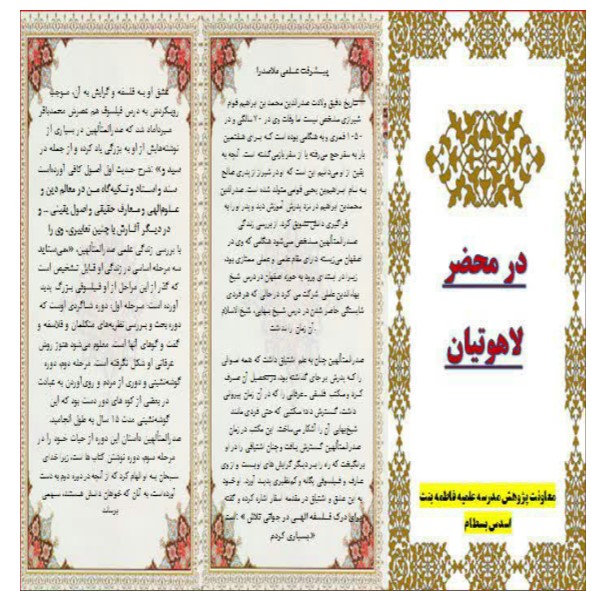 در محضر
لاهوتیان
معاونت پژوهش مدرسه علمیه فاطمه بنت
اسدس بسطام
پیشرفت علمی ملاصدرا
تاریخ دقیق ولادت صدرالدین محمد بن ابراهیم قوام
شیرازی مشخص نیست اما وفات وی در ۷۰ سالگی و در
۱۰۵۰ قمری و به هنگامی بوده است که برای هفتمین
بار به سفر حج می‌رفته یا از سفر بازمی‌گشته است. آنچه به
یقین از او می‌دانیم این است که او در شیراز از پدری صالح
به نام ابراهیم‌بن یحیی قوامی متولد شده است. صدرالدین
محمدبن ابراهیم در نزد پدرش آموزش دید و پدر او را به
فراگیری دانش تشویق کرد. از بررسی زندگی
صدرالمتألهین مشخص می‌شود هنگامی که وی در
اصفهان می‌زیسته دارای مقام علمی و عملی ممتازی بود،
زیرا در ابتدای ورود به حوزه اصفهان در درس شیخ
بهاءالدین عاملی شرکت می کرد در حالی که هر فردی
شایستگی حاضر شدن در درس شیخ بهایی، شیخ الاسلام
آن زمان را نداشت.
صدرالمتألهین چنان به علم اشتیاق داشت که همه اموالی
را که پدرش بر جای گذاشته بود، در تحصیل آن صرف
کرد و مکتب فلسفی ـ عرفانی را که در آن زمان پیروانی
داشت، گسترش داد؛ مکتبی که حتی فردی مانند
شیخ‌بهایی آن را آشکار می‌ساخت. این مکتب در زمان
صدرالمتألهین گسترش یافت و چنان اشتیاقی را در او
برانگیخت که راه را بر دیگر گرایش های او بست و از وی
عارف و فیلسوفی یگانه و کم‌نظیری پدید آورد. او خود
به این عشق و اشتیاق در مقدمه اسفار اشاره کرده و گفته
است: «برای درک فلسفه الهی در جوانی تلاش
بسیاری کردم.»
عشق او به فلسفه و گرایش به آن، موجب
رویکردش به درس فیلسوف هم عصرش محمدباقر
میرداماد شد که صدرالمتألهین در بسیاری از
نوشته‌هایش از او به بزرگی یاد کرده و از جمله در
شرح حدیث اول اصول کافی آورده‌است: «سید و
سند و استاد و تکیه‌گاه من در معالم دین و
علوم‌الهی و معارف حقیقی و اصول یقینی ـ و
در دیگر آثارش با چنین تعابیری، وی را
می‌ستاید.» با بررسی زندگی علمی صدرالمتألهین،
سه مرحله اساسی در زندگی او قابل تشخیص است
که گذر از این مراحل از او فیلسوفی بزرگ پدید
آورده است. مرحله اول: دوره شاگردی اوست که
دوره بحث و بررسی نظریه‌های متکلمان و فلاسفه و
گفت و گوهای آنها است. معلوم می‌شود هنوز روش
عرفانی او شکل نگرفته است. مرحله دوم، دوره
گوشه‌نشینی و دوری از مردم و روی‌آوردن به عبادت
در بعضی از کوه های دور دست بود که این
گوشه‌نشینی مدت ۱۵ سال به طول انجامید.
صدرالمتألهین داستان این دوره از حیات خود را در
مرحله سوم، دوره نوشتن کتاب ها است، زیرا خدای
سبحان به او الهام کرد که از آنچه در دوره دوم به دست
آورده‌است، به آنان که خواهان دانش هستند، سهمی
برساند.